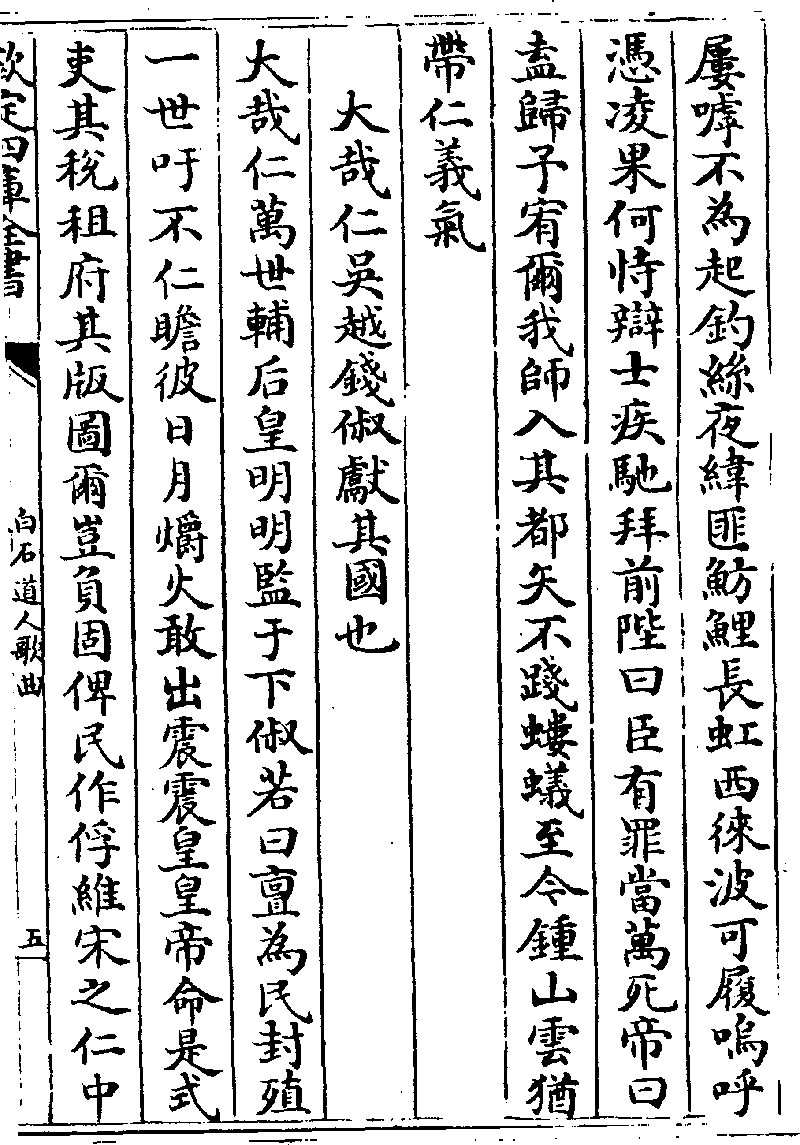 屢嘑不為起釣絲夜緯匪魴鯉長虹西徠波可履嗚呼
憑凌果何恃辯士疾馳拜前陛曰臣有罪當萬死帝曰
盍歸予宥爾我師入其都矢不踐螻蟻至今鍾山雲猶
帶仁義氣
大哉仁吳越錢俶獻其國也
大哉仁萬世輔后皇明明監于下俶若曰亶為民封殖
一世吁不仁瞻彼日月爝火敢出震震皇皇帝命是式
吏其稅租府其版圖爾豈負固俾民作俘維宋之仁中
欽定四庫全書
白石道人歌曲
五